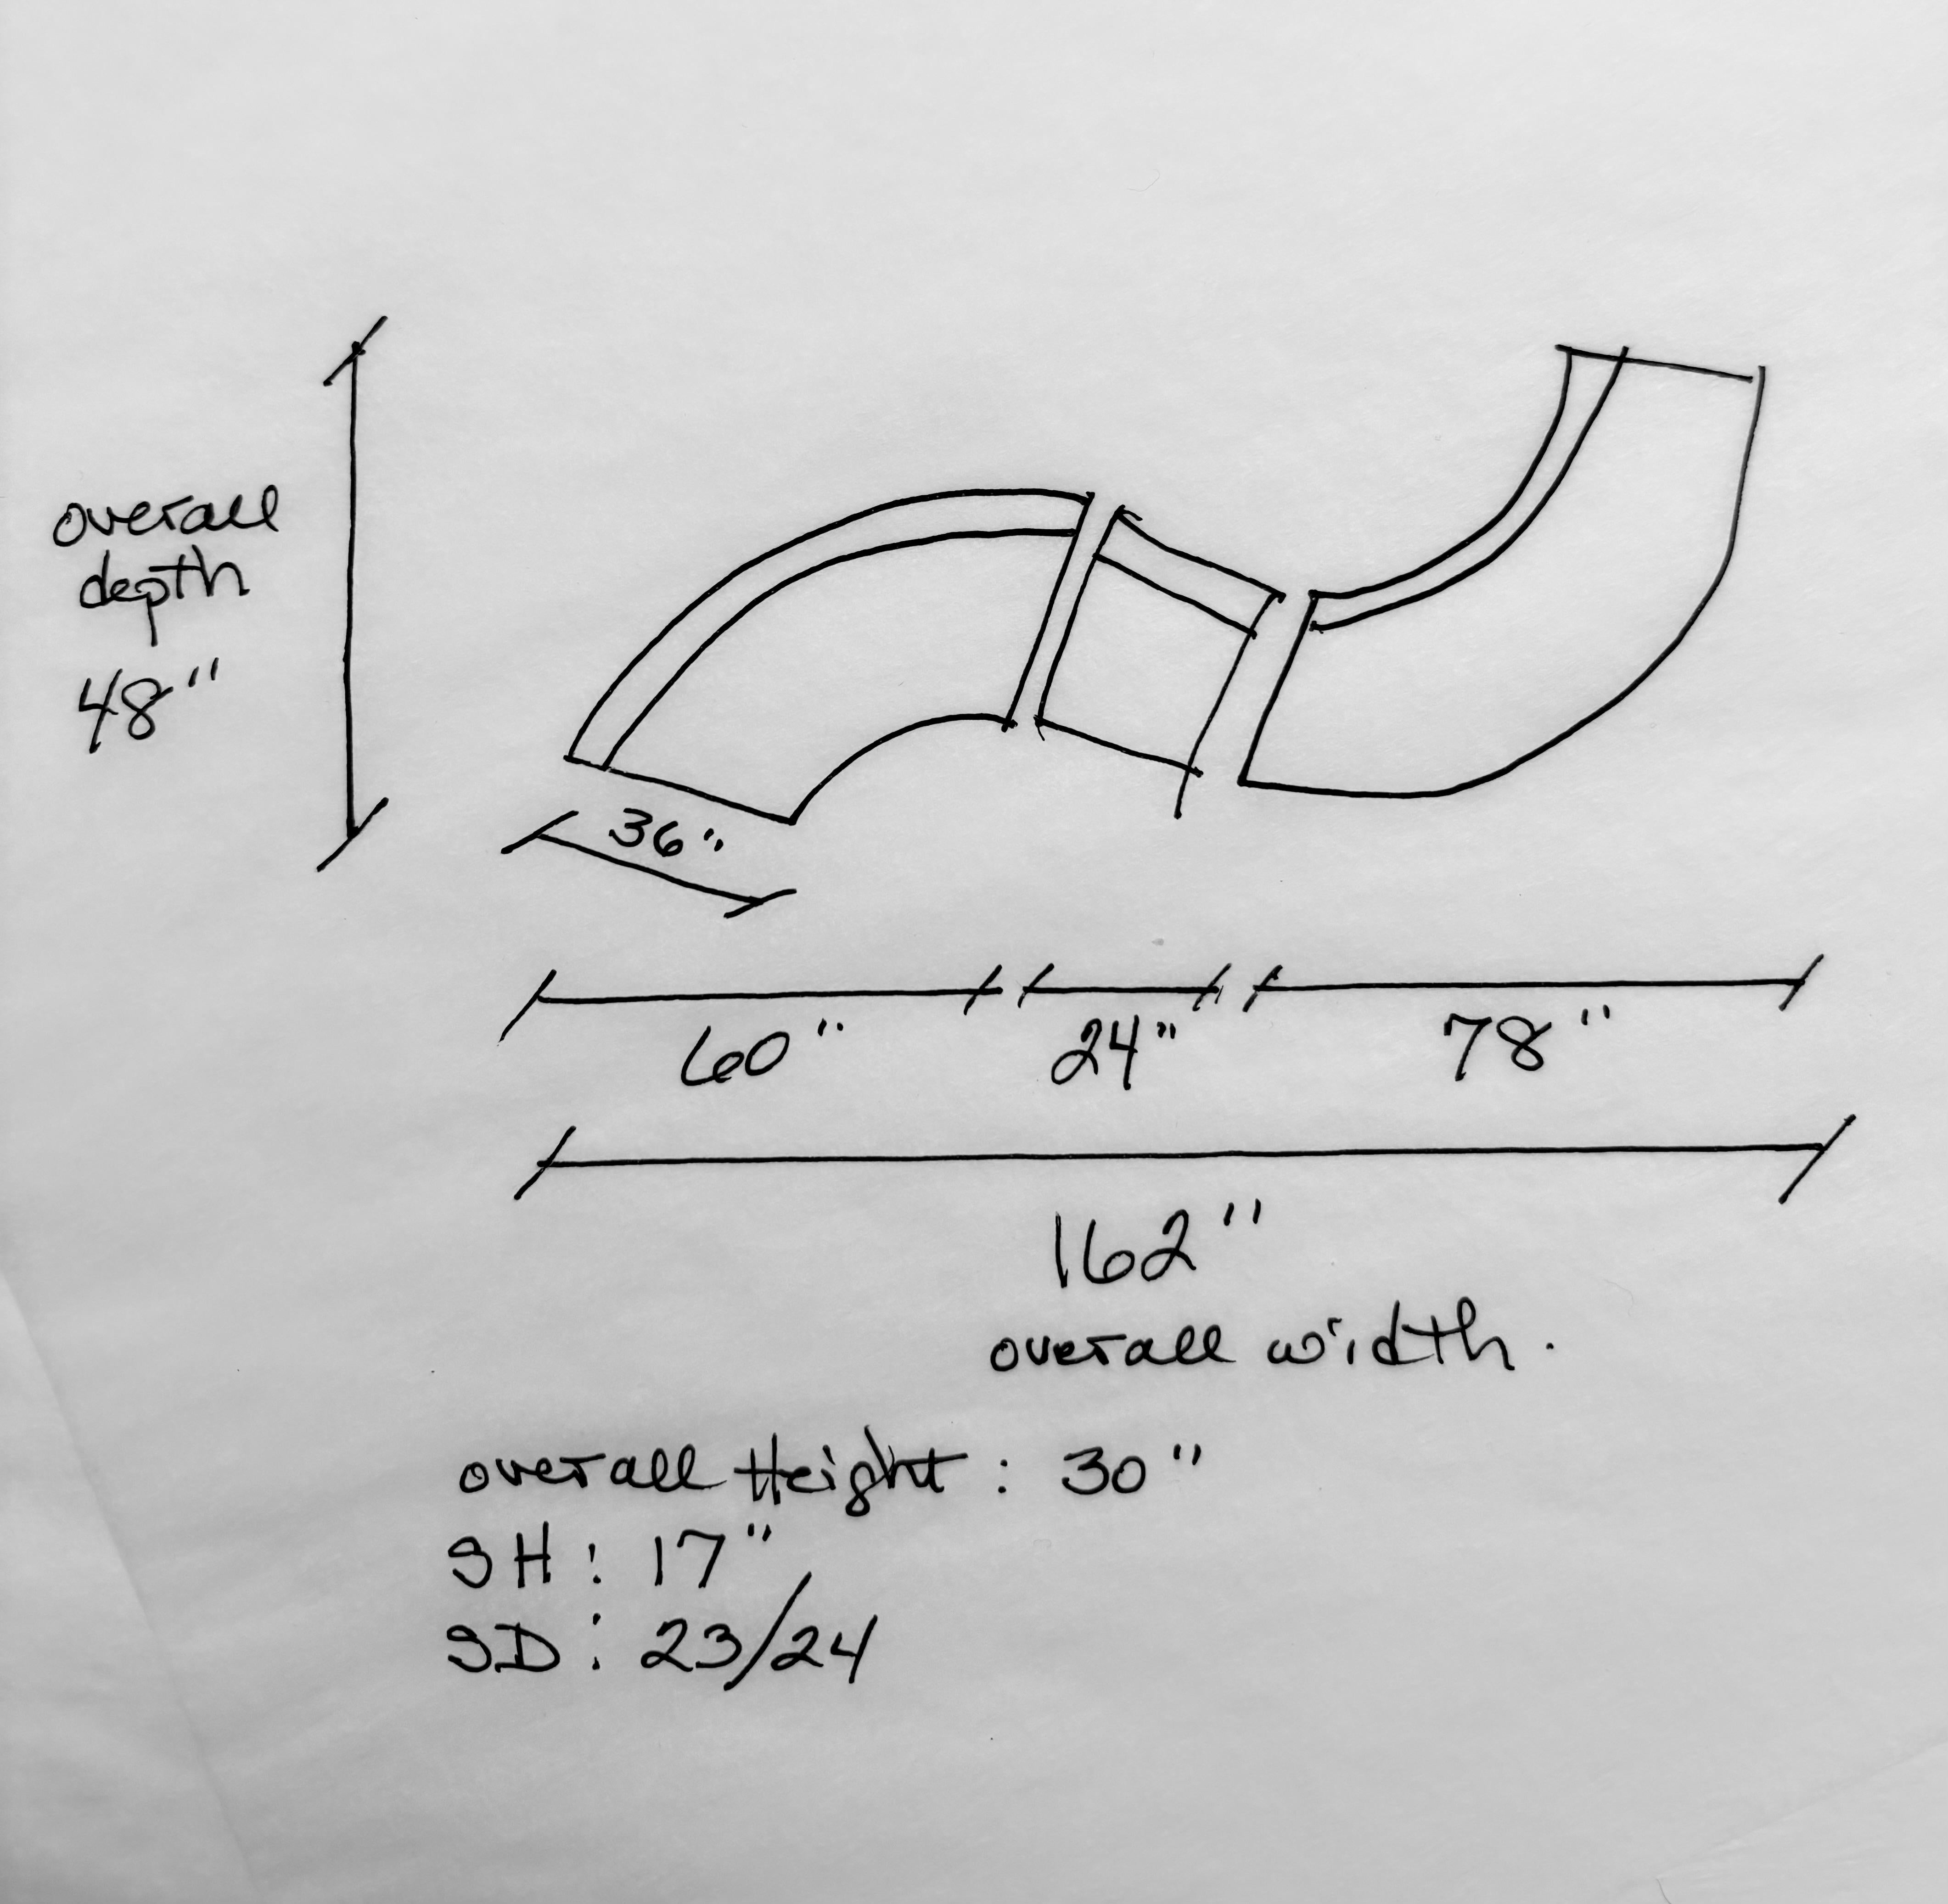 overall
depth
48"
36"
60" 24" 78"
162"
overall width.
overall Height: 30"
SH: 17"
SD: 23/24